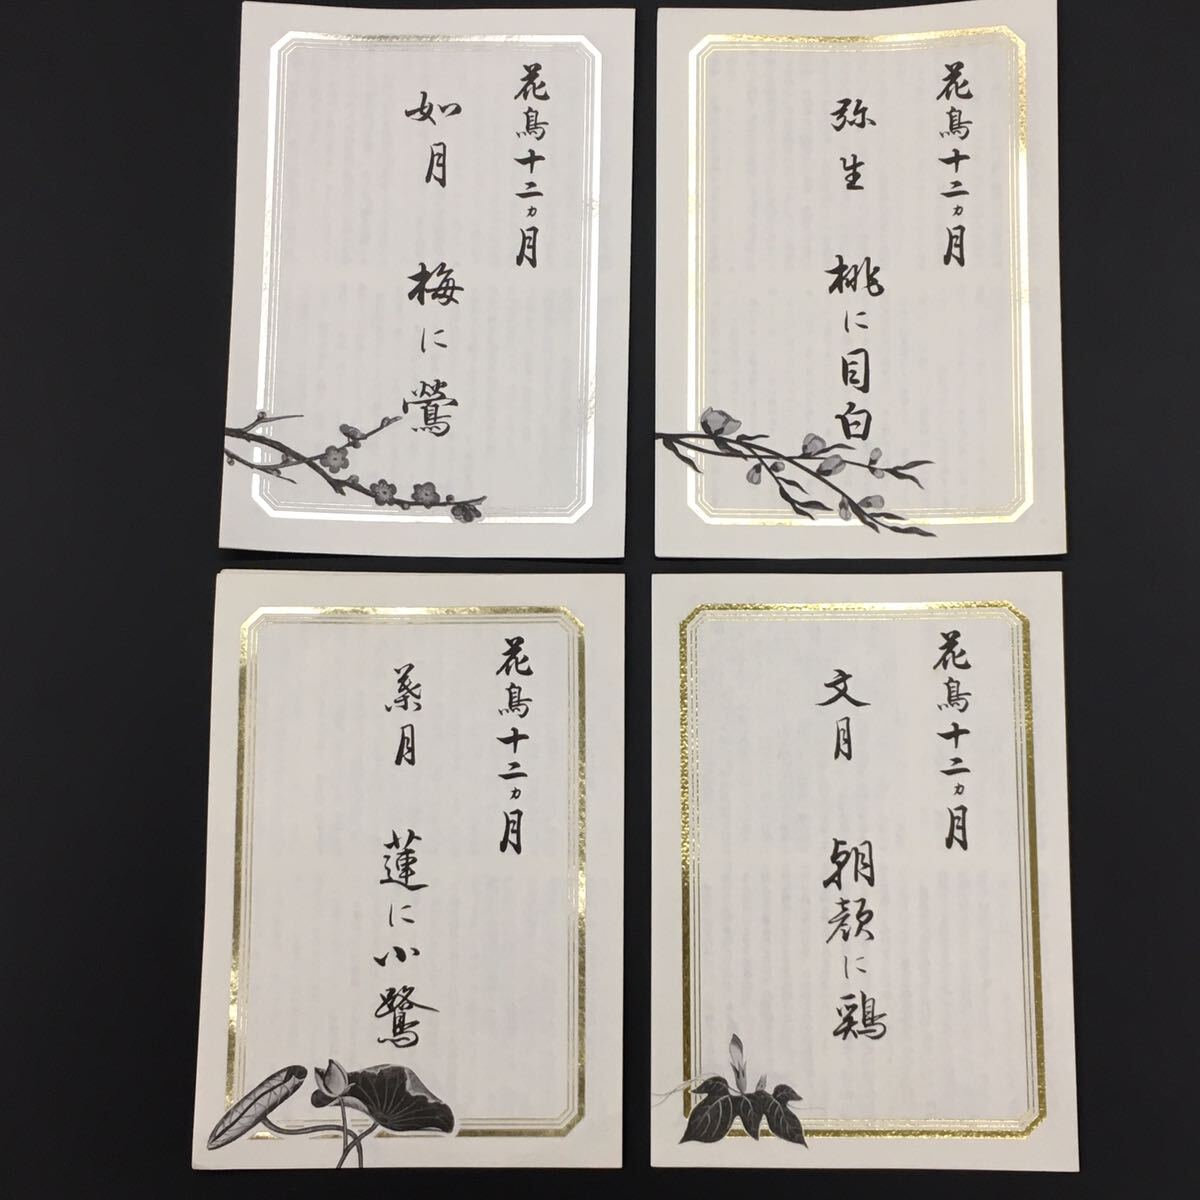 花鳥十二ヵ月
如月 梅に鶯
花鳥十二ヵ月
弥生 桃に目白
花鳥十二ヵ月
葉月 蓮に小鷺
花鳥十二ヵ月
文月 朝顔に鶏